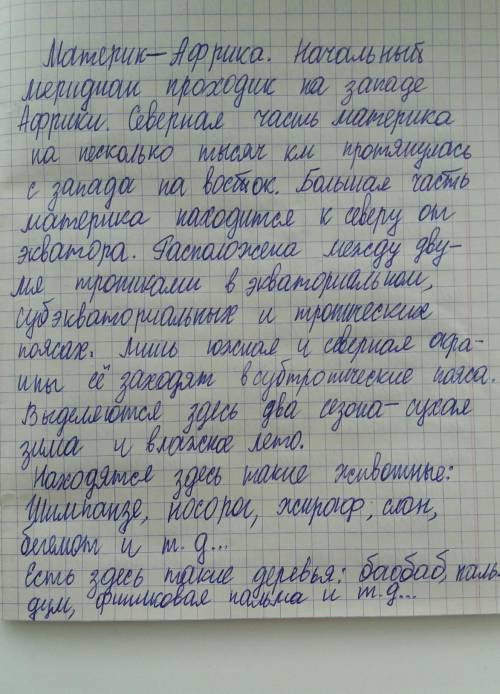 Материк – Африка. Начальный
меридиан проходик на западе
Африки. Северная часть материка
на несколько тысяч км протянулась
с запада на восток. Большая часть
материка находится к северу от
экватора. Расположена между дву-
мя тропиками в экваториальном,
субэкваториальных и тропических
поясах. Лишь южная и северная окра-
ины её заходят в субтропические пояса.
Выделяются здесь два сезона – сухая
зима и влажное лето.
Находятся здесь такие животные:
Шимпанзе, носорог, жираф, слон,
бегемот и т.д...
Есть здесь такие деревья: баобаб, паль-
дум, финиковая пальма и т.д...